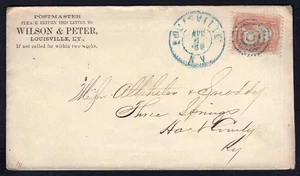 POSTMASTER
PLEASE RETURN THIS LETTER TO
WILSON & PETER,
LOUISVILLE, KY.
If not called for within two weeks.
LOUISVILLE
KY.
Three Springs
Hart County
Ky